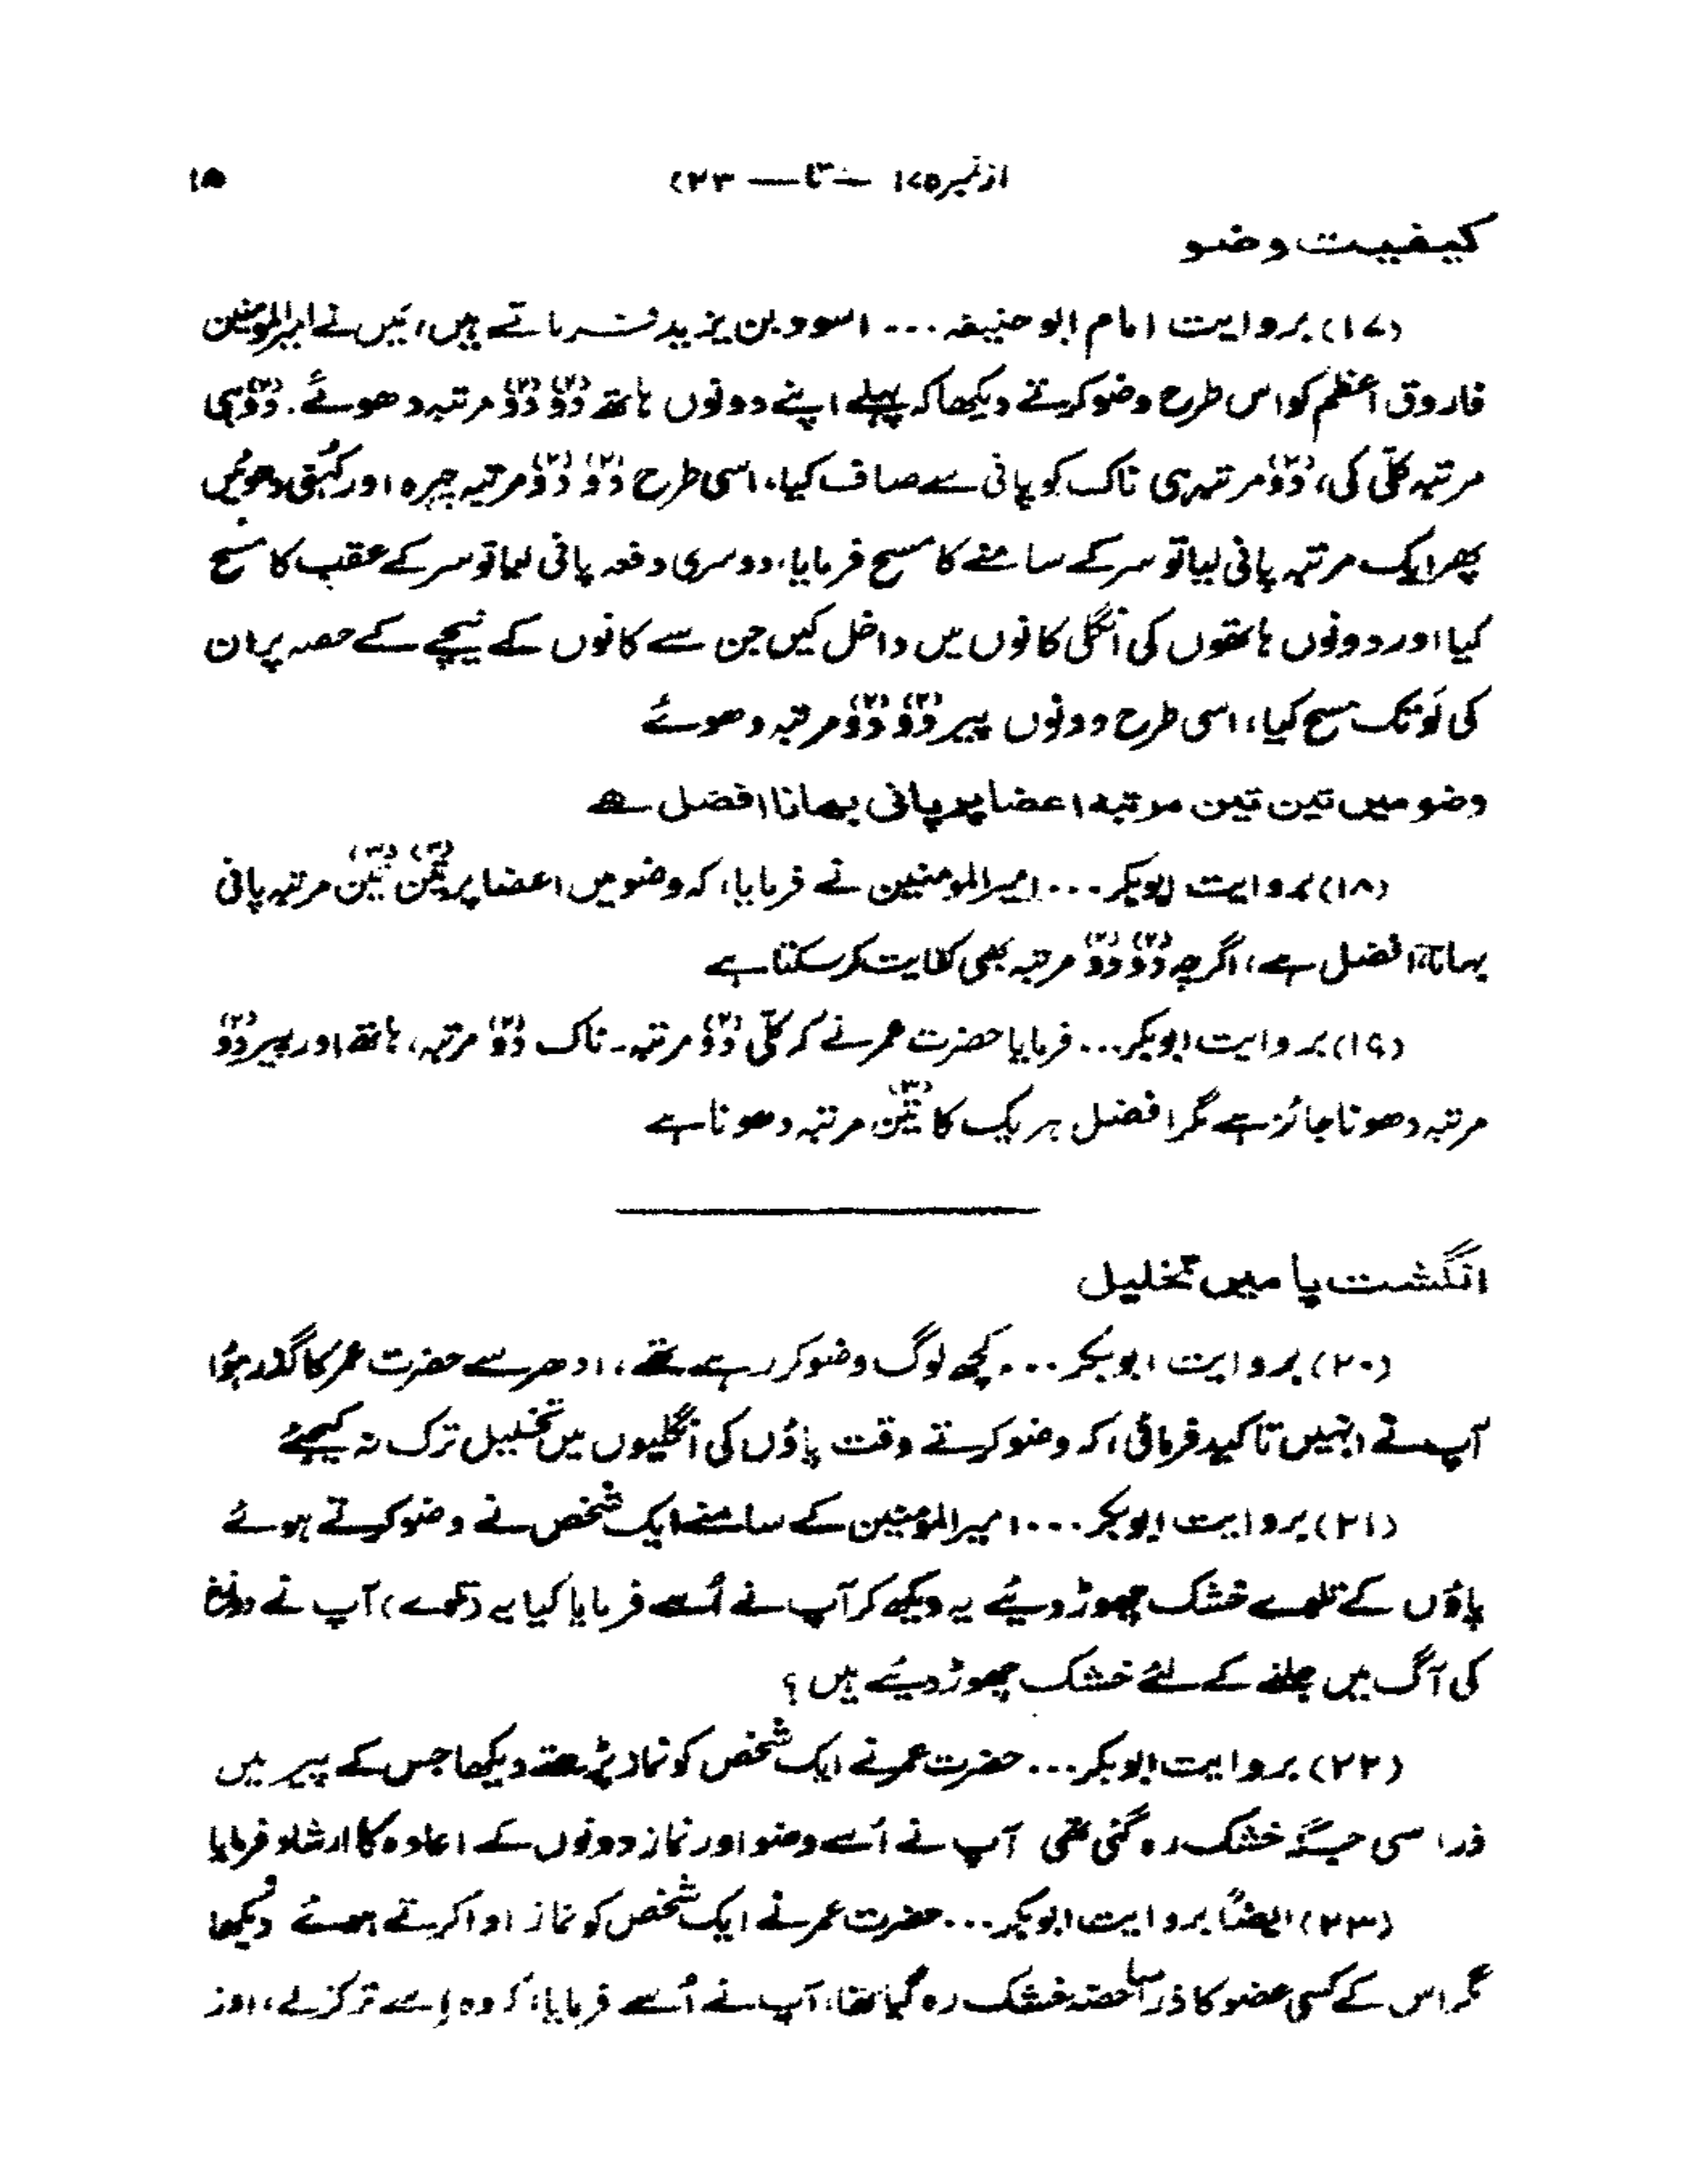 ۱۵ از نمبر ۱۷ تا ۲۳
کیفیت وضو
(۱۷) بروایت امام ابو حنیفہ ... اسود بن یزید فرماتے ہیں، میں نے امیرالمومنین
فاروق اعظم کو اس طرح وضو کرتے دیکھا کہ پہلے اپنے دونوں ہاتھ دو (۲) دو (۲) مرتبہ دھوئے۔ دو (۲) ہی
مرتبہ کلّی کی، دو (۲) مرتبہ ہی ناک کو پانی سے صاف کیا، اسی طرح دو (۲) دو (۲) مرتبہ چہرہ اور کہنی دھوئیں
پھر ایک مرتبہ پانی لیا تو سر کے سامنے کا مسح فرمایا، دوسری دفعہ پانی لیا تو سر کے عقب کا مسح
کیا اور دونوں ہاتھوں کی انگلی کانوں میں داخل کیں جن سے کانوں کے نیچے کے حصہ پر ان
کی لَو تک مسح کیا، اسی طرح دونوں پیر دو (۲) دو (۲) مرتبہ دھوئے
وضو میں تین تین مرتبہ اعضا پر پانی بہانا افضل ہے
(۱۸) بروایت ابوبکر ... امیرالمومنین نے فرمایا، کہ وضو میں اعضا پر تین (۳) تین (۳) مرتبہ پانی
بہانا افضل ہے، اگرچہ دو (۲) دو (۲) مرتبہ بھی کفایت کر سکتا ہے
(۱۹) بروایت ابوبکر ... فرمایا حضرت عمر نے کہ کلّی دو (۲) مرتبہ۔ ناک دو (۲) مرتبہ، ہاتھ اور پیر دو (۲)
مرتبہ دھونا جائز ہے مگر افضل ہر یک کا تین (۳) مرتبہ دھونا ہے
انگشت پا میں تخلیل
(۲۰) بروایت ابوبکر ... کچھ لوگ وضو کر رہے تھے، ادھر سے حضرت عمر کا گذر ہوُا
آپ نے انہیں تاکید فرمائی، کہ وضو کرتے وقت پاؤں کی انگلیوں میں تخلیل ترک نہ کیجئے
(۲۱) بروایت ابوبکر ... امیرالمؤمنین کے سامنے ایک شخص نے وضو کرتے ہوئے
پاؤں کے تلوے خشک چھوڑ دیئے یہ دیکھ کر آپ نے اُسے فرمایا کیا یہ (تلوے) آپ نے دوزخ
کی آگ میں جلنے کے لئے خشک چھوڑ دیئے ہیں؟
(۲۲) بروایت ابوبکر ... حضرت عمر نے ایک شخص کو نماز پڑھتے دیکھا جس کے پیر میں
ذرا سی جگہ خشک رہ گئی تھی آپ نے اُسے وضو اور نماز دونوں کے اعادہ کا ارشاد فرمایا
(۲۳) ایضاً بروایت ابوبکر ... حضرت عمر نے ایک شخص کو نماز ادا کرتے ہوئے دیکھا
مگر اس کے کسی عضو کا ذرا سا حصّہ خشک رہ گیا تھا، آپ نے اُسے فرمایا، کہ وہ اِسے تر کرلے، اور